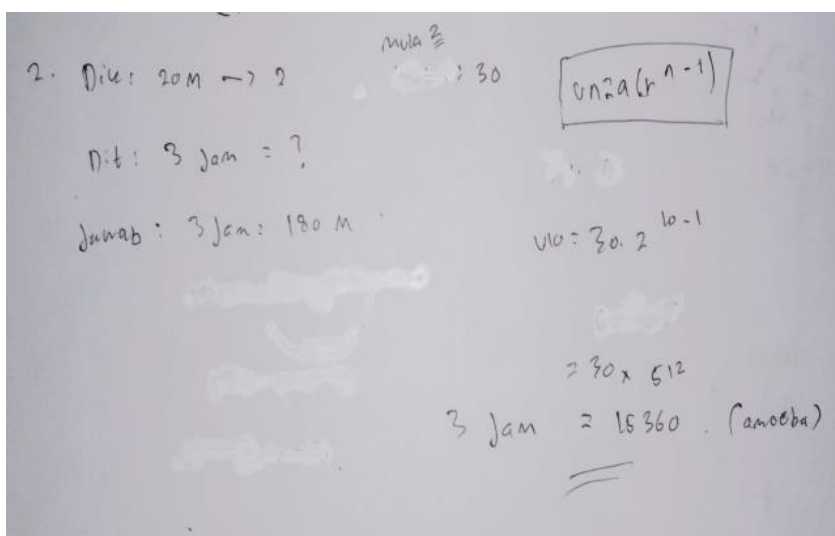 2. Dik: 20 M → 2
mula 2 : 30
Un = a(r^n-1)
Dit : 3 Jam = ?
Jawab : 3 Jam = 180 M
U10 = 30. 2^10-1
= 30 x 512
3 Jam = 15360. (amoeba)